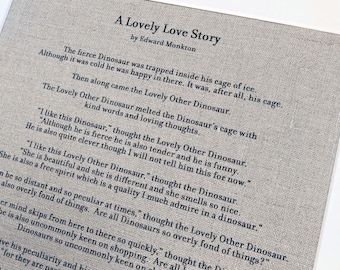 A Lovely Love Story
by Edward Monkton
The fierce Dinosaur was trapped inside his cage of ice.
Although it was cold he was happy in there. It was, after all, his cage.
Then along came the Lovely Other Dinosaur.
The Lovely Other Dinosaur melted the Dinosaur's cage with
kind words and loving thoughts.
"I like this Dinosaur," thought the Lovely Other Dinosaur.
"Although he is fierce he is also tender and he is funny.
He is also quite clever though I will not tell him this for now."
"I like this Lovely Other Dinosaur," thought the Dinosaur.
"She is beautiful and she is different and she smells so nice.
She is also a free spirit which is a quality I much admire in a dinosaur."
n be so distant and so peculiar at times," thought the Lovely Other Dinosaur.
also overly fond of things. Are all Dinosaurs so overly fond of things?"
er mind skips from here to there so quickly," thought the Dinosaur.
e is also uncommonly keen on shopping. Are all
Dinosaurs so uncommonly keen on
ve his peculiarity and his
"for they are pa